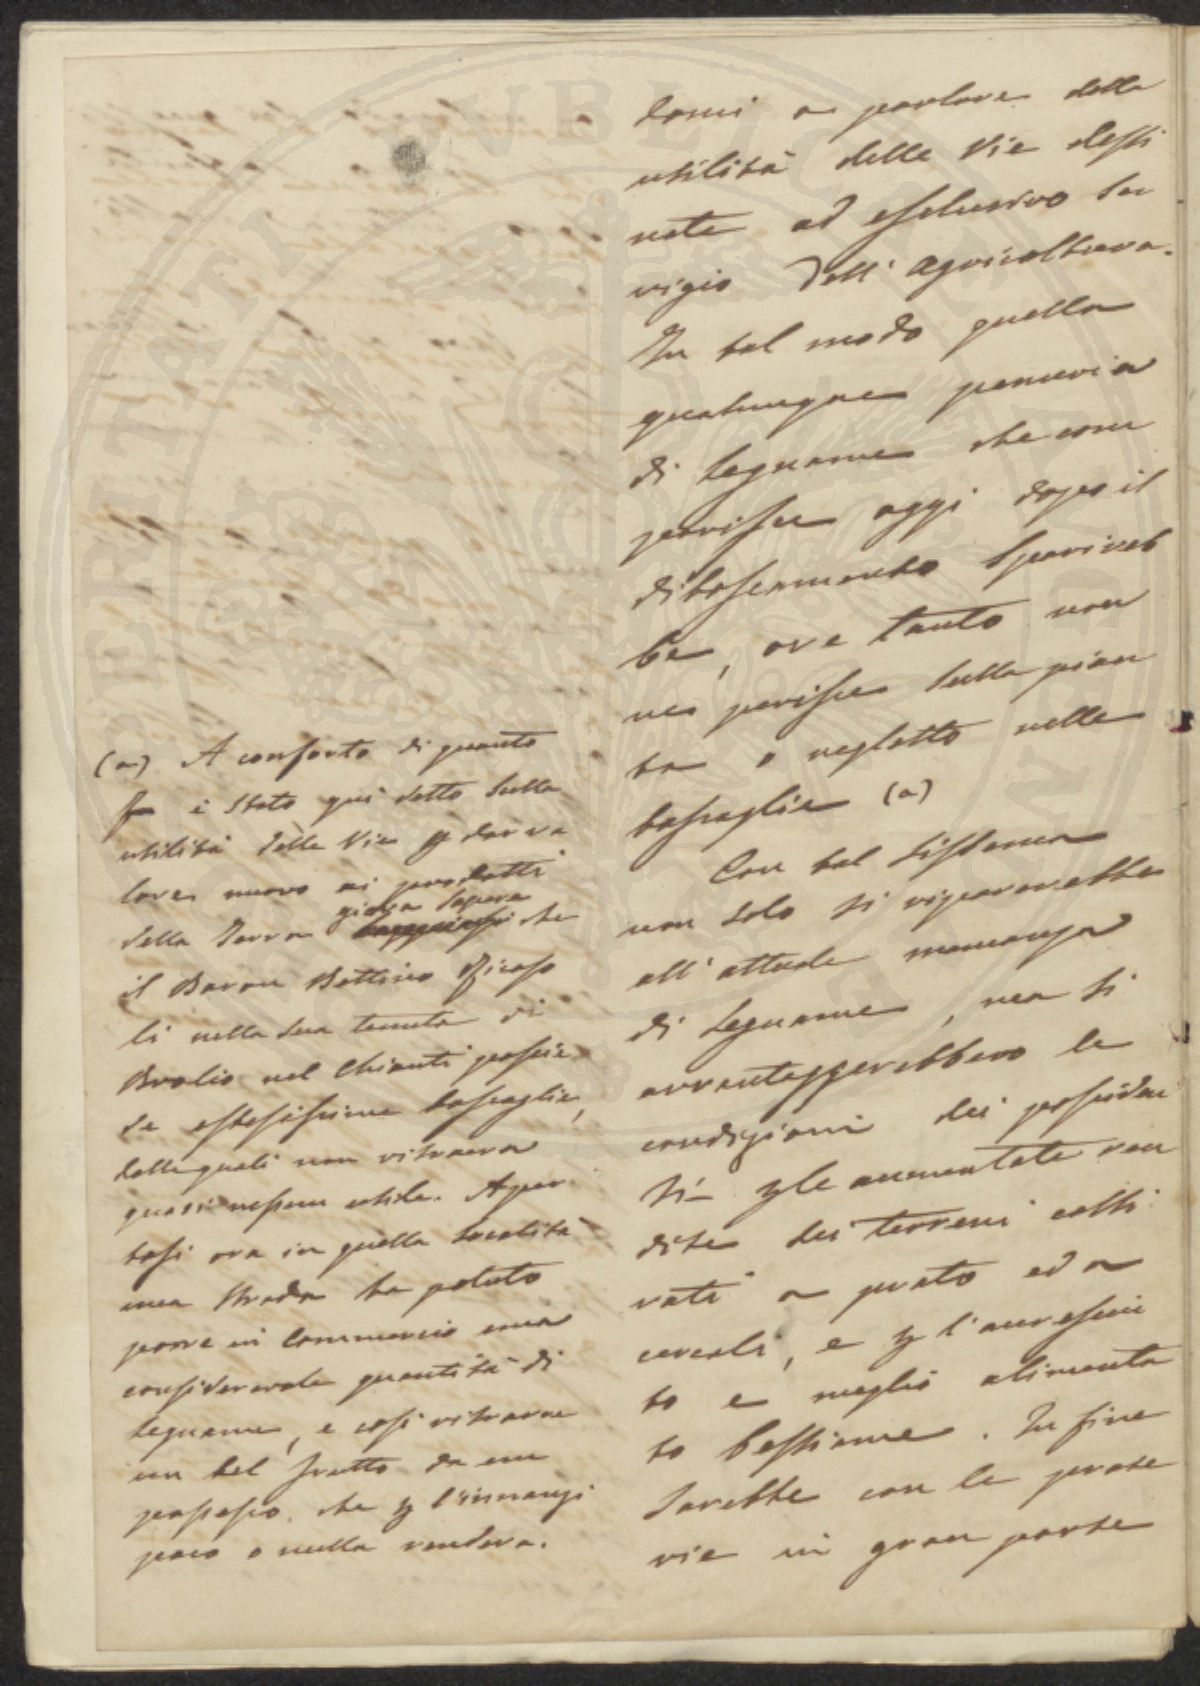 domi a parlare della
utilità delle Vie desti
nate ad esclusivo ser
vigio dell' Agricoltura.
In tal modo quella
qualunque penuria
di legname che com
parisce oggi dopo il
diboscamento sparireb
be, ove tanto non
ne perisse sulla pian
ta o negletto nelle
boscaglie (a)
Con tal sistema
non solo si riparerebbe
all' attuale mancanza
di legname, ma si
avvantaggerebbero le
condizioni dei possiden
ti p le aumentate ren
dite dei terreni colti
vati a prato ed a
cereali, e p l'accresciu
to e meglio alimenta
to bestiame. In fine
sarebbe con le prate
rie in gran parte
(a) A conforto di quanto
è stato qui detto sulla
utilità delle Vie p dar va
lore nuovo ai prodotti
della Terra giova sapere che
il Baron Bettino Ricaso
li nella sua tenuta di
Brolio nel Chianti possie
de estesissime boscaglie,
dalle quali non ritraeva
quasi nessun utile. Aper
tasi ora in quella località
una strada ha potuto
porre in commercio una
considerevole quantità di
legname, e così ritrarne
un bel frutto da un
possesso, che p l'innanzi
poco o nulla rendeva.